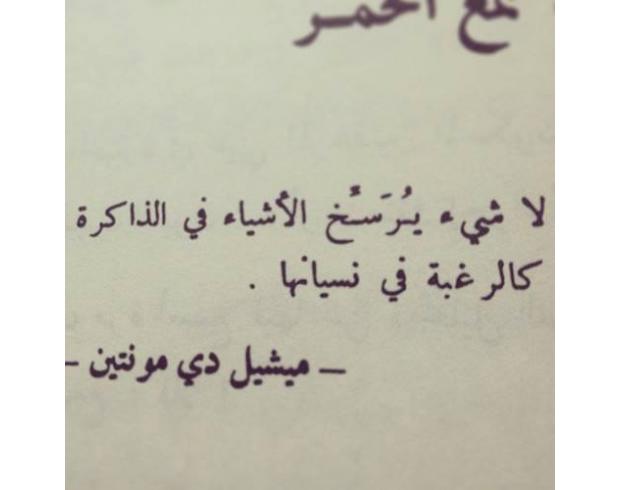 مع الخمر
لا شيء يُرَسَّخ الأشياء في الذاكرة
كالرغبة في نسيانها .
– ميشيل دي مونتين –